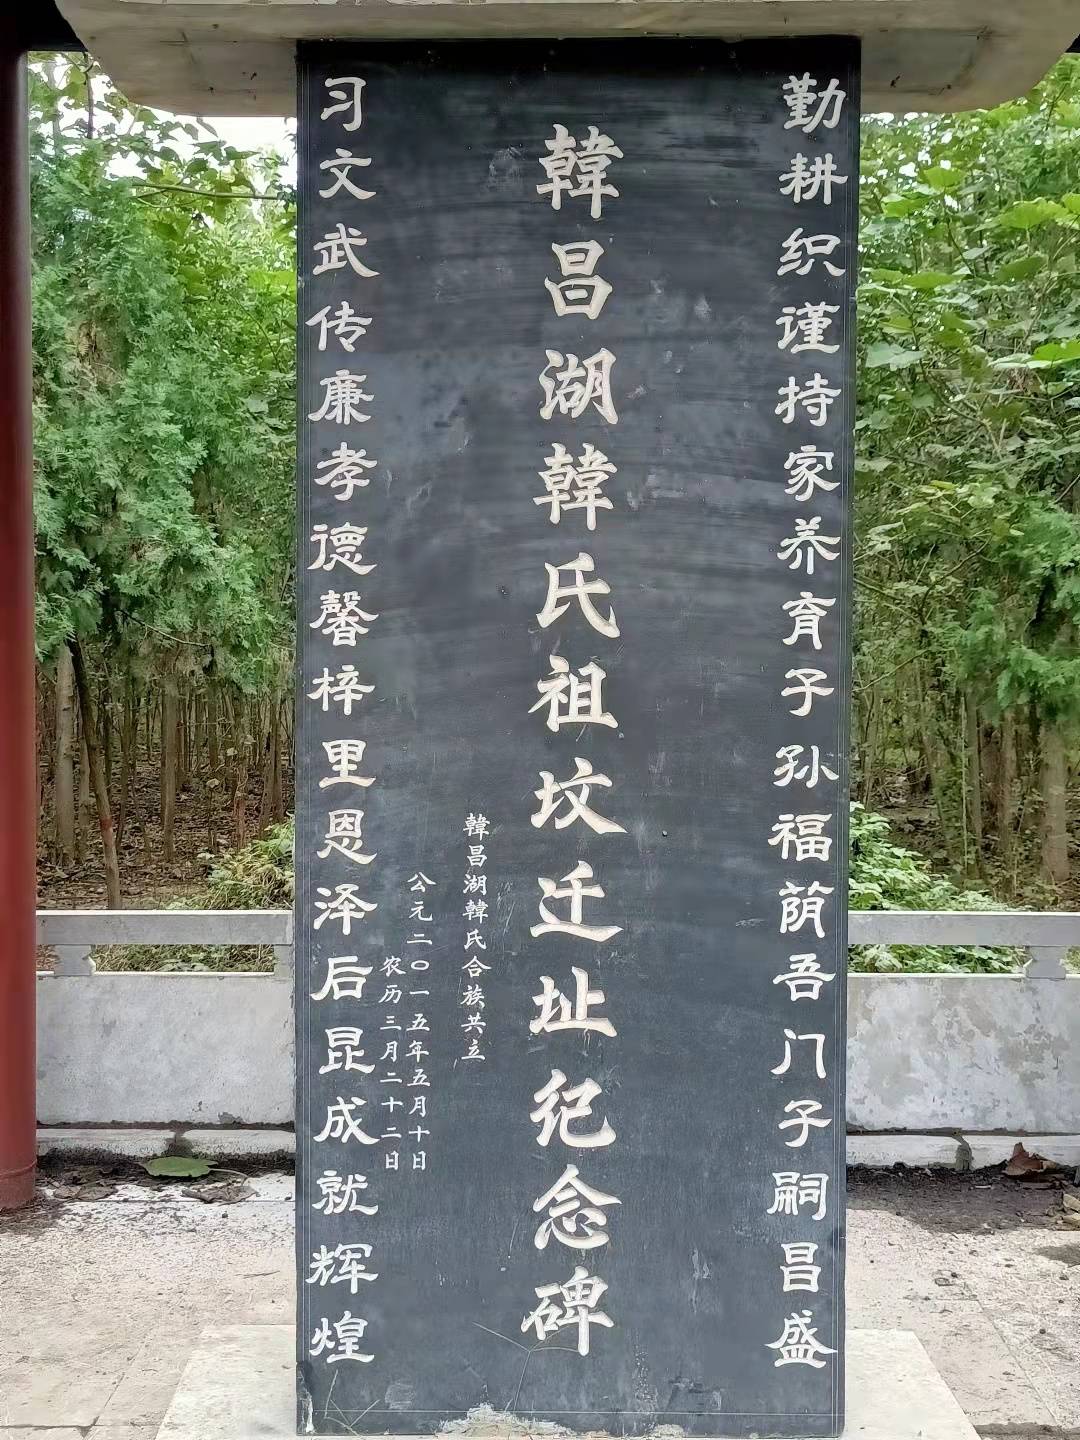 勤耕织谨持家养育子孙福荫吾门子嗣昌盛
韓昌湖韓氏祖坟迁址纪念碑
韓昌湖韓氏合族共立
公元二〇一五年五月十日
农历三月二十二日
习文武传廉孝德馨梓里恩泽后昆成就辉煌